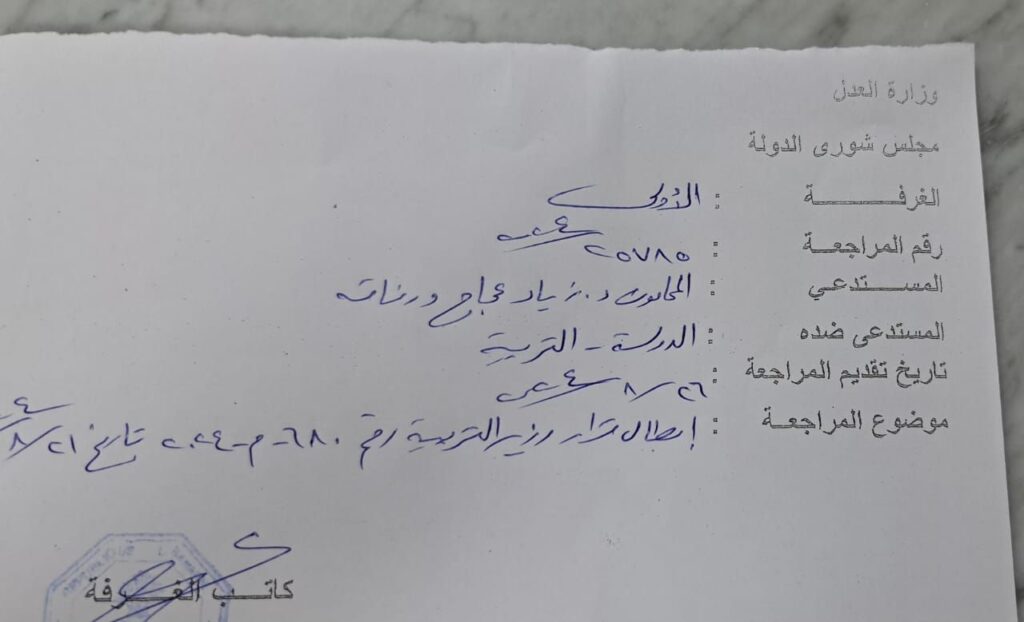 وزارة العدل
مجلس شورى الدولة
الغرفة : الأولى
رقم المراجعة : ٢٥٧٨٥/٢٠٢٤
المستدعي : المحامون د. زياد عجاج ورفاقه
المستدعى ضده : الدولة - التربية
تاريخ تقديم المراجعة : ٢٦/٨/٢٠٢٤
موضوع المراجعة : إبطال قرار وزير التربية رقم ٦٨٠-م-٢٠٢٤ تاريخ ٢١/٨/
كاتب الغرفة